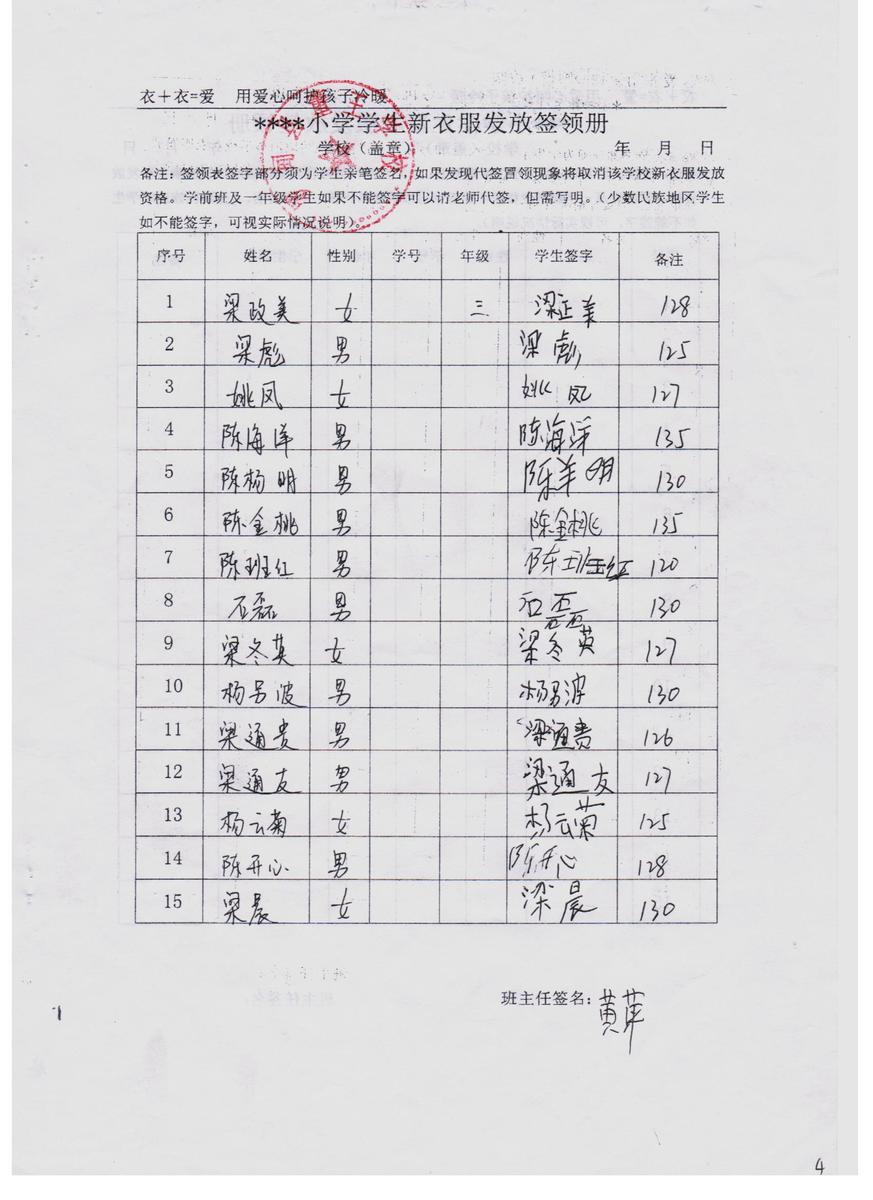 衣＋衣=爱 用爱心呵护孩子冷暖
****小学学生新衣服发放签领册
学校（盖章） 年 月 日
备注：签领表签字部分须为学生亲笔签名，如果发现代签冒领现象将取消该学校新衣服发放
资格。学前班及一年级学生如果不能签字可以请老师代签，但需写明。（少数民族地区学生
如不能签字，可视实际情况说明）。
序号 姓名 性别 学号 年级 学生签字 备注
1 梁政美 女 三 梁正美 128
2 梁彪 男 梁彪 125
3 姚凤 女 姚凤 127
4 陈海洋 男 陈海洋 135
5 陈杨明 男 陈羊明 130
6 陈金桃 男 陈金桃 135
7 陈班红 男 陈班红 120
8 石磊 男 石磊 130
9 梁冬英 女 梁冬英 127
10 杨昌波 男 杨男波 130
11 梁通贵 男 梁通贵 126
12 梁通友 男 梁通友 127
13 杨云菊 女 杨云菊 125
14 陈开心 男 陈开心 128
15 梁晨 女 梁晨 130
班主任签名：黄萍
4